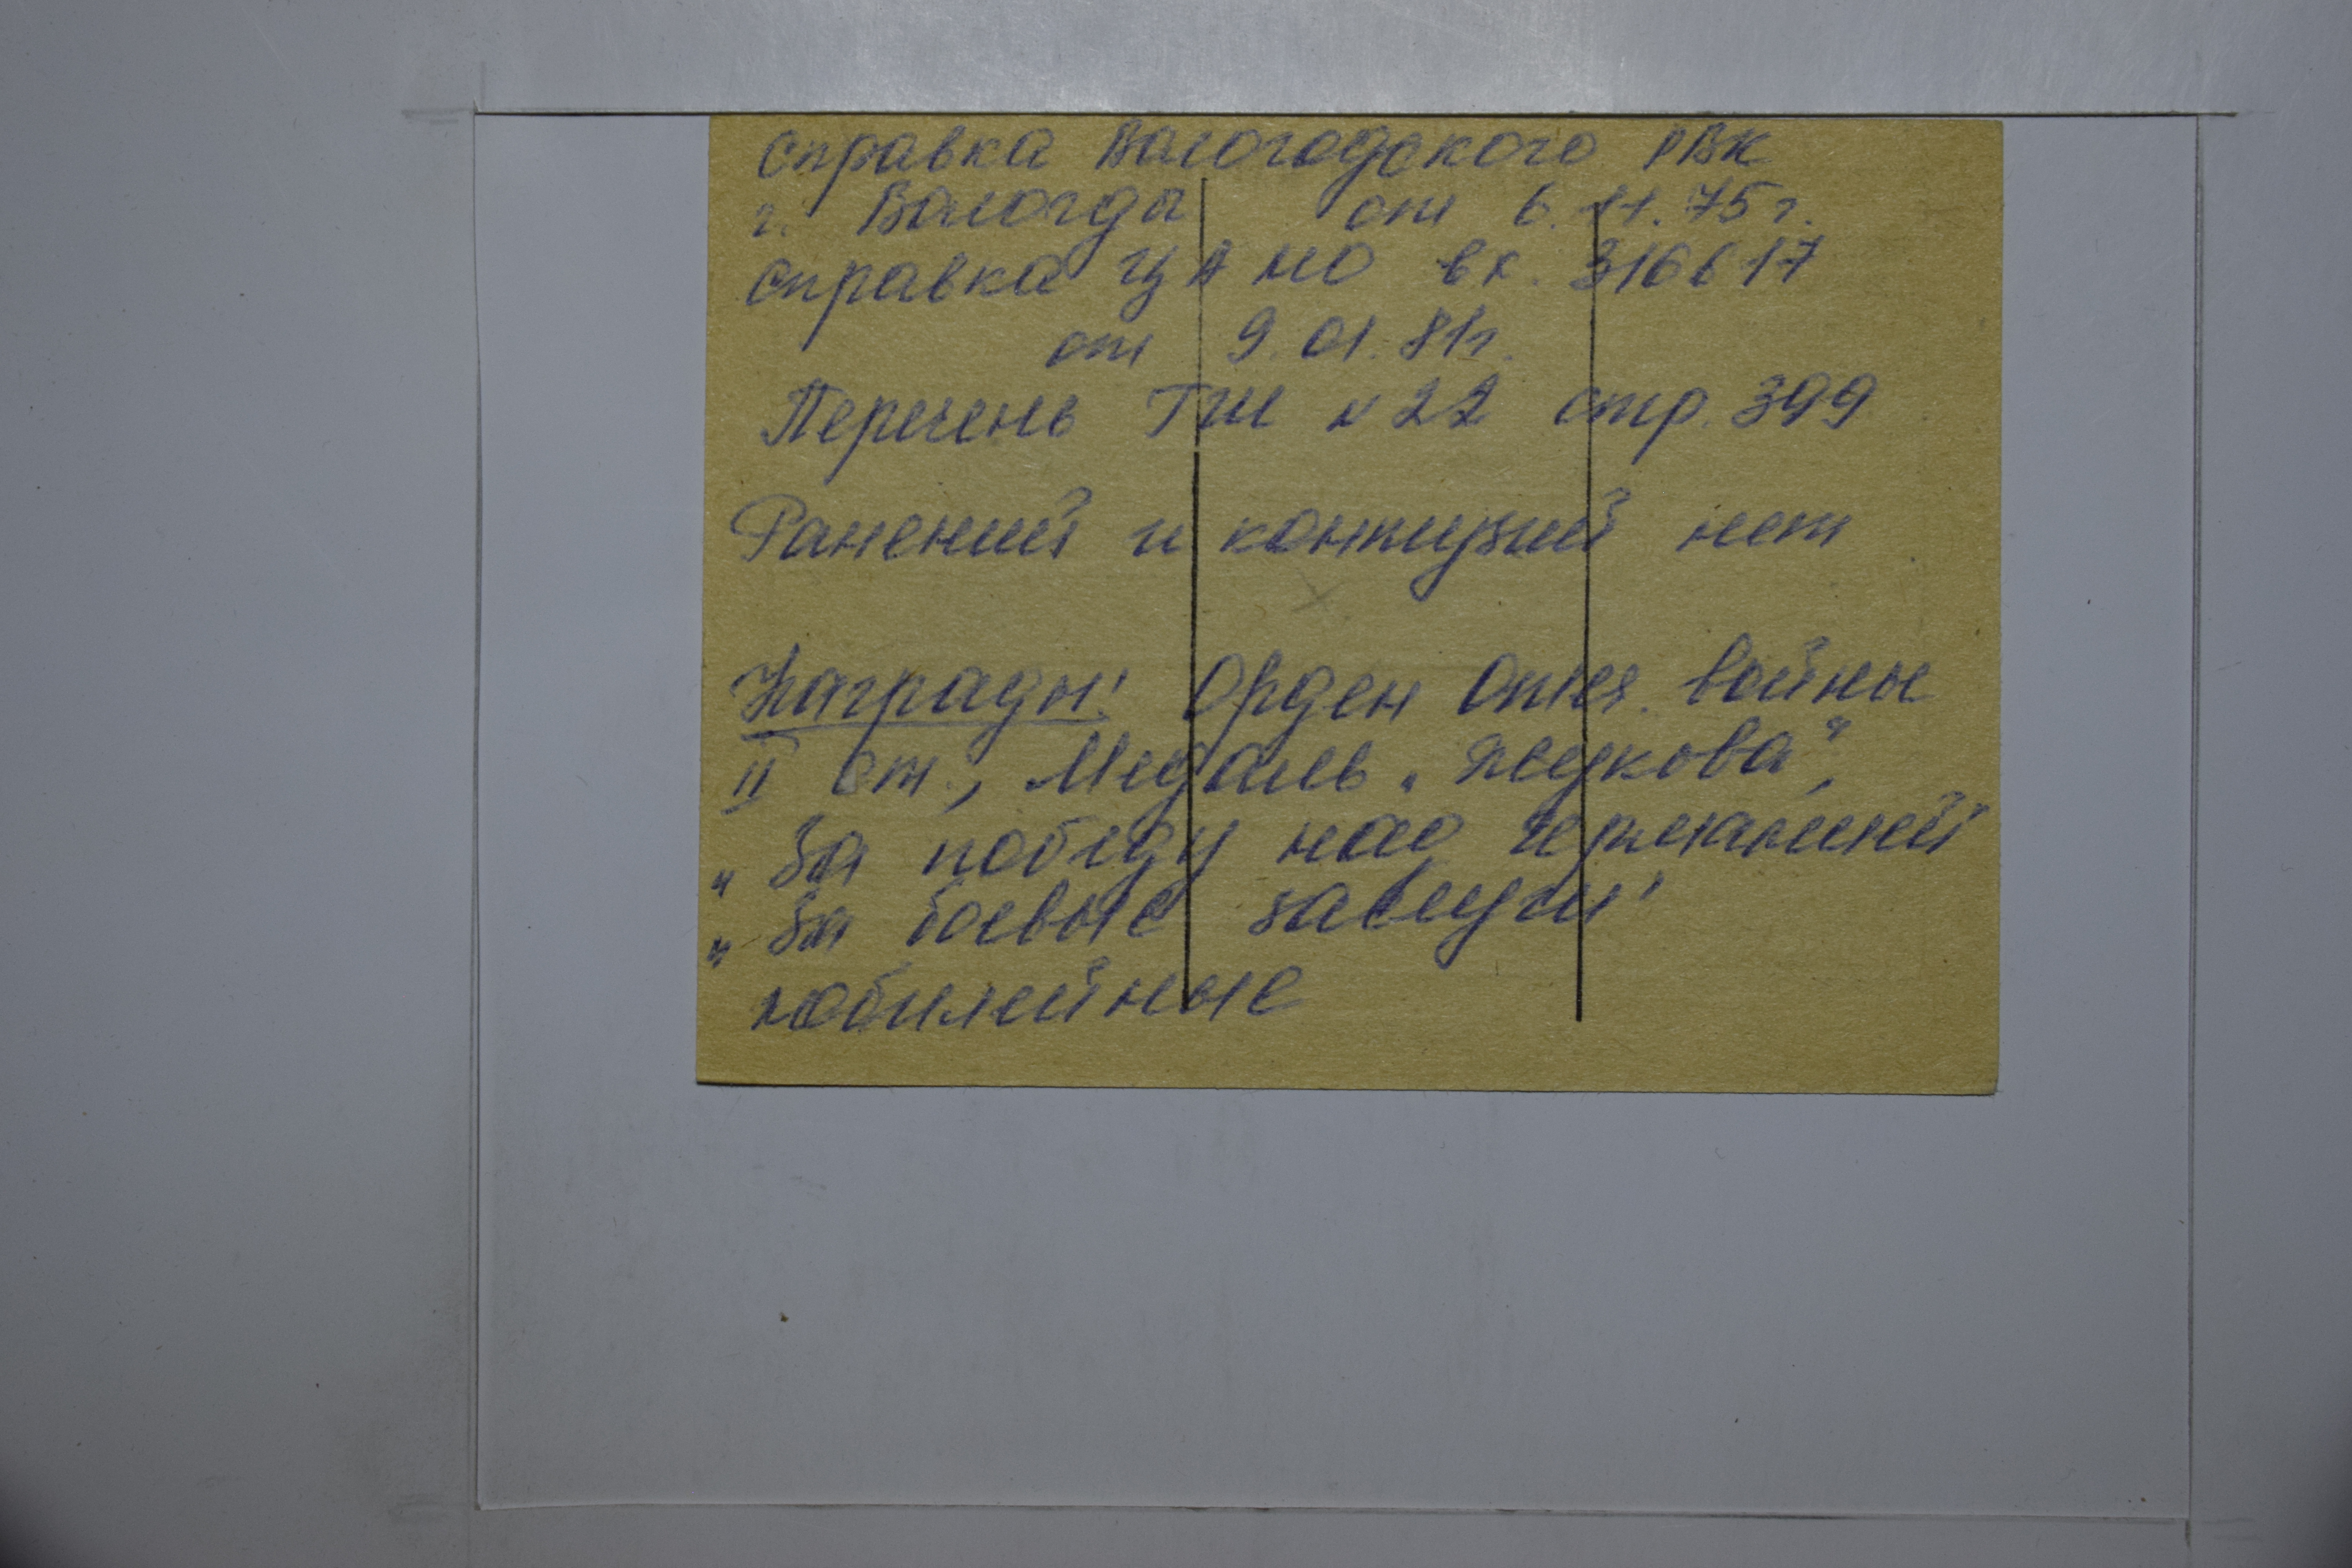 справка Вологодского РВК
г. Вологда от 6.11.75 г.
справка ЦАМО вх. 316617
от 9.01.81г.
Перечень ГШ N 22 стр. 399
Ранений и контузий нет
Награды: Орден Отеч. войны
II ст., Медаль „Жукова",
„За победу над германией
„За боевые заслуги"
юбилейные